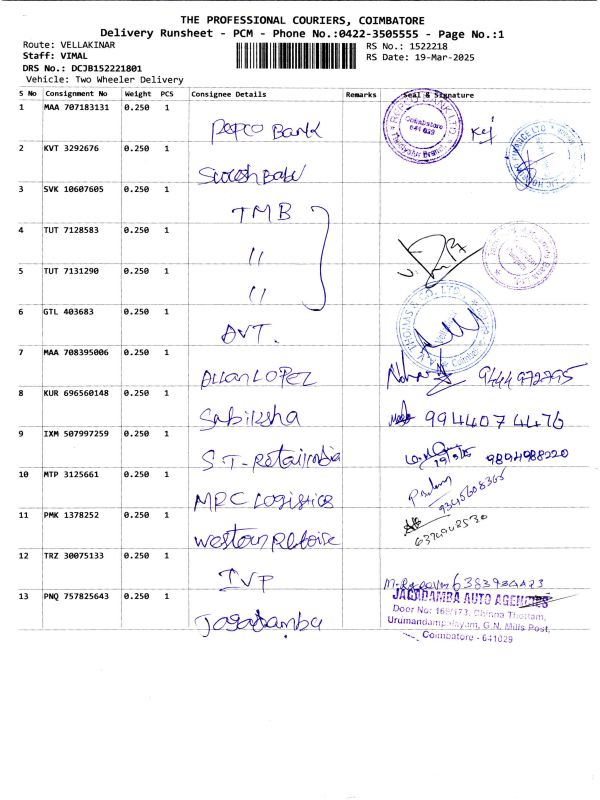 THE PROFESSIONAL COURIERS, COIMBATORE
Delivery Runsheet - PCM - Phone No.:0422-3505555 - Page No.:1
Route: VELLAKINAR
RS No.: 1522218
Staff: VIMAL
RS Date: 19-Mar-2025
DRS No.: DCJB152221801
Vehicle: Two Wheeler Delivery
S No Consignment No Weight PCS Consignee Details Remarks Seal & Signature
1 MAA 707183131 0.250 1
Repco Bank
REPCO BANK LTD
Coimbatore
641 029
2 KVT 3292676 0.250 1
Suresh Babu
3 SVK 10607605 0.250 1
TMB
4 TUT 7128583 0.250 1
"
5 TUT 7131290 0.250 1
"
6 GTL 403683 0.250 1
AVT.
A.V. THOMAS & CO. LTD.
7 MAA 708395006 0.250 1
Allan LOPEZ
8 KUR 696560148 1 0.250
Sabiksha
9944074476
9 IXM 507997259 0.250 1
S.T-Retail India
19/3/25 9894988220
10 MTP 3125661 0.250 1
MRC Logistics
9345608365
11 PMK 1378252 0.250 1
western Refoise
12 TRZ 30075133 0.250 1
IVP
13 PNQ 757825643 0.250 1
Jagadamba
JAGADAMBA AUTO AGENCIES
Door No: 168/173, Chinna Thottam,
Urumandampalayam, G.N. Mills Post,
Coimbatore - 641029